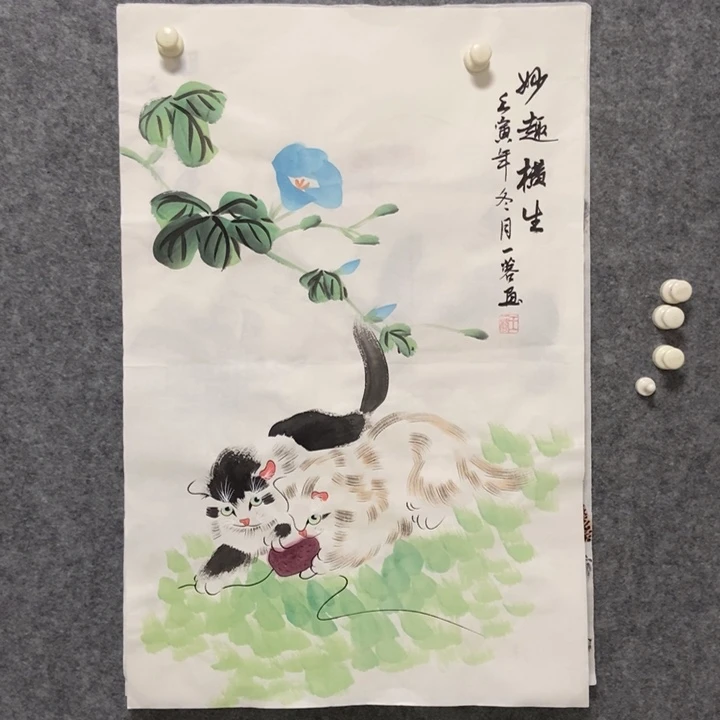 妙趣横生
壬寅年冬月一蓉画